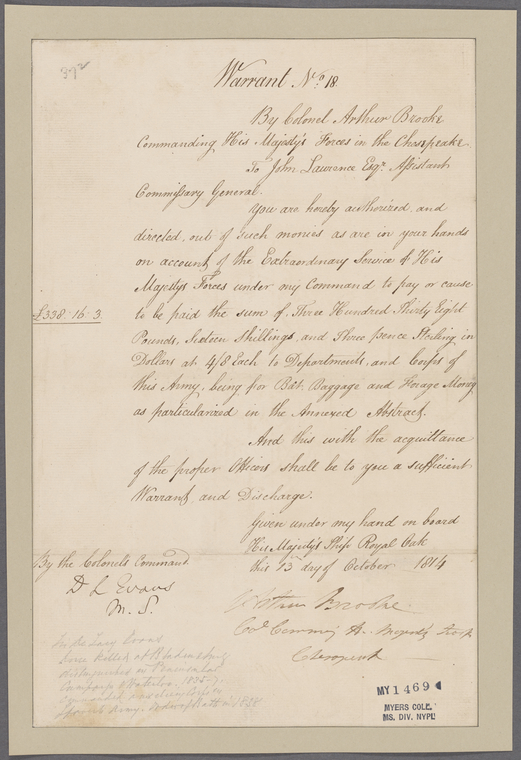 392
Warrant No. 18.
By Colonel Arthur Brooke
Commanding His Majesty's Forces in the Chesapeake.
To John Lawrence Esqr. Assistant
Commissary General.
You are hereby authorized, and
directed, out of such monies as are in your hands
on account of the Extraordinary Service of His
Majesty's Forces under my Command to pay or cause
£338..16..3
to be paid the sum of, Three Hundred Thirty Eight
Pounds, Sixteen Shillings, and Three pence Sterling in
Dollars at 4/8 Each to Departments, and Corps of
this Army, being for Bat, Baggage and Forage Money
as particularized in the Annexed Abstract.
And this with the acquittance
of the proper Officers shall be to you a sufficient
Warrant, and Discharge.
Given under my hand on board
His Majesty's Ship Royal Oak
this 13 day of October 1814
By the Colonel's Command
D L Evans
M. S.
Arthur Brooke.
Col Commg H. Majesty's
Chesapeak
Sir De Lacy Evans
killed at Bladensburg
distinguished in Peninsular
Waterloo. 1835-7.
commanded
Spanish Army. Bath
MY 1469
MYERS COLL.
MS. DIV. NYPL